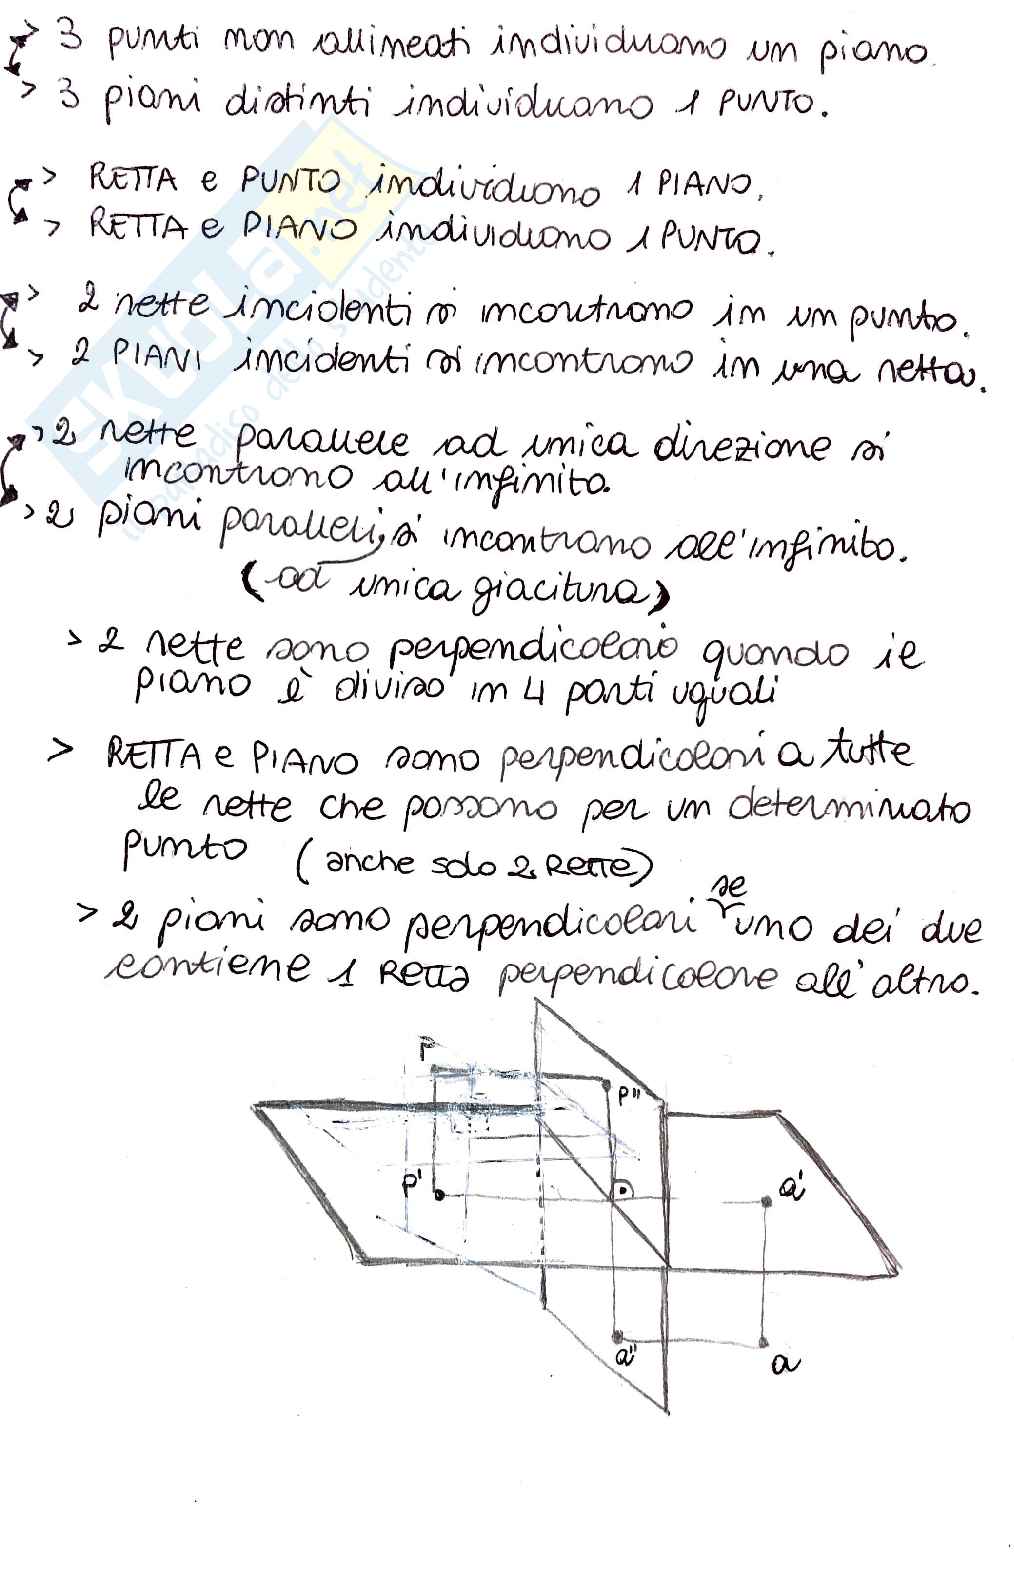 > 3 punti non allineati individuano un piano.
> 3 piani distinti individuano 1 PUNTO.
> RETTA e PUNTO individuono 1 PIANO.
> RETTA e PIANO individuono 1 PUNTO.
> 2 rette incidenti si incontrano in un punto.
> 2 PIANI incidenti si incontrono in una retta.
> 2 rette parallele ad unica direzione si
incontrono all'infinito.
> 2 piani paralleli, si incontrano all'infinito.
(ad unica giacitura)
> 2 rette sono perpendicolari quando il
piano è diviso in 4 parti uguali
> RETTA e PIANO sono perpendicolari a tutte
le rette che passono per un determinato
punto (anche solo 2 Rette)
se
> 2 piani sono perpendicolari uno dei due
contiene 1 Retta perpendicolare all'altro.
P
P"
P'
a'
a"
a
SKUOLA.net
il paradiso dello studente